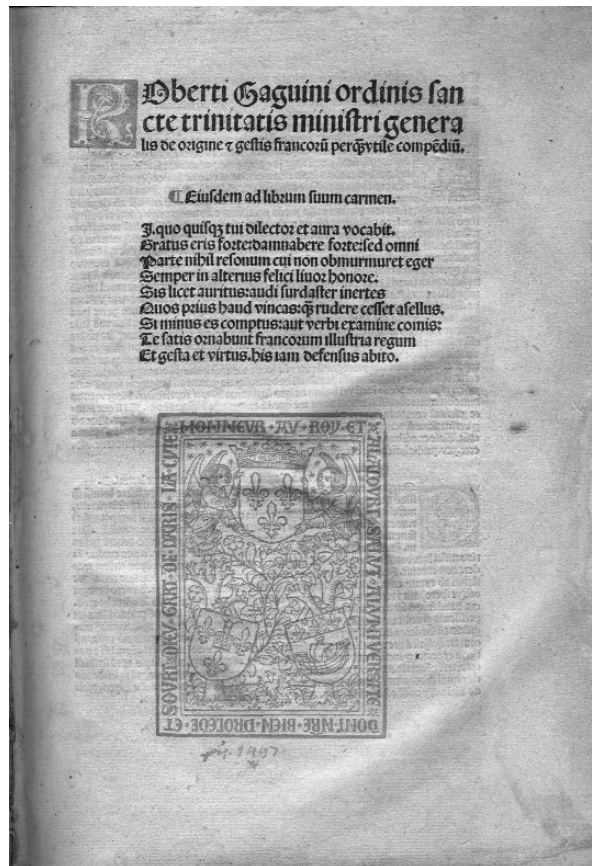 ROberti Gaguini ordinis san
cte trinitatis ministri genera
lis de origine ⁊ gestis francorū perq̄ȝvtile compēdiū.
¶Eiusdem ad librum suum carmen.
I. quo quisqȝ tui dilector et aura vocabit.
Gratus eris forte:damnabere forte:sed omni
Parte nihil resonum cui non obmurmuret eger
Semper in alterius felici liuor honore.
Sis licet auritus:audi surdaster inertes
Quos prius haud vincas:q̄ȝ rudere cesset asellus.
Si minus es comptus:aut verbi examine comis:
Te satis ornabunt francorum illustria regum
Et gesta et virtus.his iam defensus abito.
HONNEUR·AU·ROY·ET
ALACOURT·SALUT·ALUNIUERSITE
DONT·NRE·BIEN·PROCEDE·ET
SOURT·DIEU·GART·DE·PARIS·LA·CITE
1497